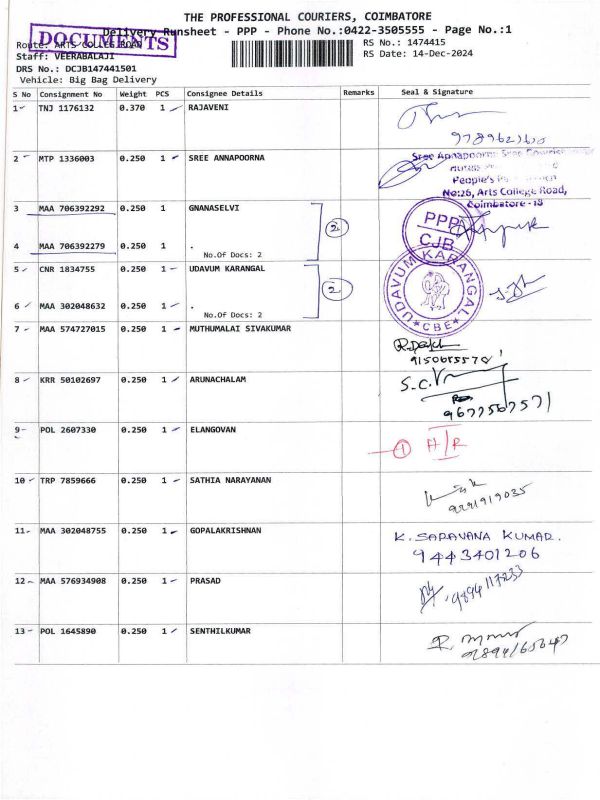 THE PROFESSIONAL COURIERS, COIMBATORE
Delivery Runsheet - PPP - Phone No.:0422-3505555 - Page No.:1
DOCUMENTS
Route: ARTS COLLEG ROAD
RS No.: 1474415
Staff: VEERABALAJI
RS Date: 14-Dec-2024
DRS No.: DCJB147441501
Vehicle: Big Bag Delivery
S No Consignment No Weight PCS Consignee Details Remarks Seal & Signature
1 TNJ 1176132 0.370 1 RAJAVENI
2 MTP 1336003 0.250 1 SREE ANNAPOORNA
People's Pa
No:26, Arts College Road,
Coimbatore - 18
3 MAA 706392292 0.250 1 GNANASELVI
2
PPP
CJB
4 MAA 706392279 0.250 1 .
No.Of Docs: 2
5 CNR 1834755 0.250 1 UDAVUM KARANGAL
2
UDAVUM KARANGAL
CBE
6 MAA 302048632 0.250 1 .
No.Of Docs: 2
7 MAA 574727015 0.250 1 MUTHUMALAI SIVAKUMAR
8 KRR 50102697 0.250 1 ARUNACHALAM
S.C.
9677567571
9 POL 2607330 0.250 1 ELANGOVAN
1 A/R
10 TRP 7859666 0.250 1 SATHIA NARAYANAN
11 MAA 302048755 0.250 1 GOPALAKRISHNAN
K. SARAVANA KUMAR.
9443401206
12 MAA 576934908 0.250 1 PRASAD
9894117233
13 POL 1645890 0.250 1 SENTHILKUMAR